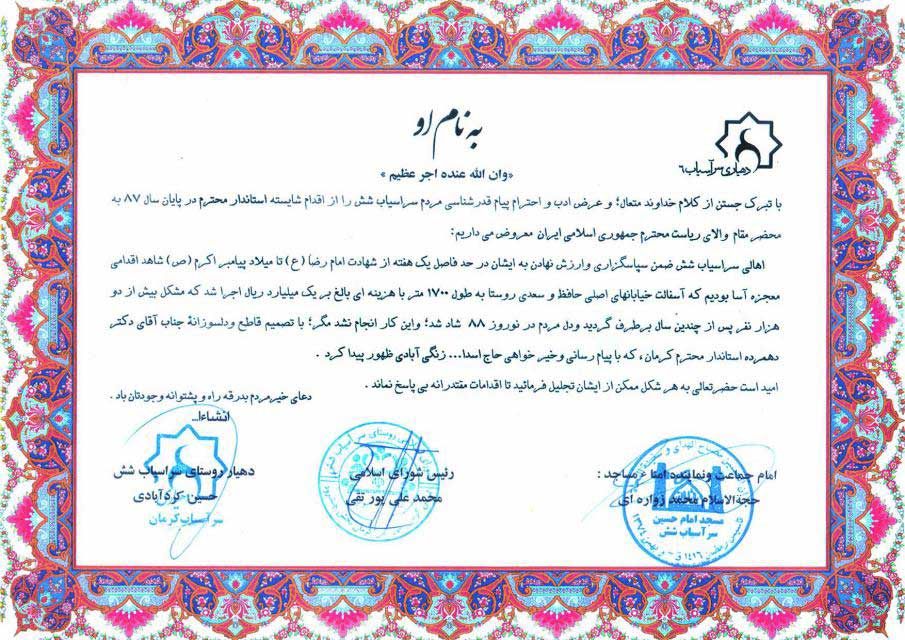 به نام او
دهیاری سرآسیاب ۶
«وان الله عنده اجر عظیم»
با تبرک جستن از کلام خداوند متعال؛ و عرض ادب و احترام پیام قدرشناسی مردم سرآسیاب شش را از اقدام شایسته استاندار محترم در پایان سال ۸۷ به
محضر مقام والای ریاست محترم جمهوری اسلامی ایران معروض می داریم:
اهالی سرآسیاب شش ضمن سپاسگزاری وارزش نهادن به ایشان در حد فاصل یک هفته از شهادت امام رضا (ع) تا میلاد پیامبر اکرم (ص) شاهد اقدامی
معجزه آسا بودیم که آسفالت خیابانهای اصلی حافظ و سعدی روستا به طول ۱۷۰۰ متر با هزینه ای بالغ بر یک میلیارد ریال اجرا شد که مشکل بیش از دو
هزار نفر پس از چندین سال برطرف گردید ودل مردم در نوروز ۸۸ شاد شد؛ واین کار انجام نشد مگر؛ با تصمیم قاطع ودلسوزانۀ جناب آقای دکتر
دهمرده استاندار محترم کرمان، که با پیام رسانی وخیر خواهی حاج اسدا... زنگی آبادی ظهور پیدا کرد .
امید است حضرتعالی به هر شکل ممکن از ایشان تجلیل فرمائید تا اقدامات مقتدرانه بی پاسخ نماند .
دعای خیر مردم بدرقه راه و پشتوانه وجودتان باد .
انشاءا...
امام جماعت ونماینده امناء مساجد :
حجةالاسلام محمد زواره ای
رئیس شورای اسلامی
محمد علی پور تقی
دهیار روستای سرآسیاب شش
حسین کردآبادی
مسجد امام حسین
سرآسیاب شش
سرآسیاب کرمان